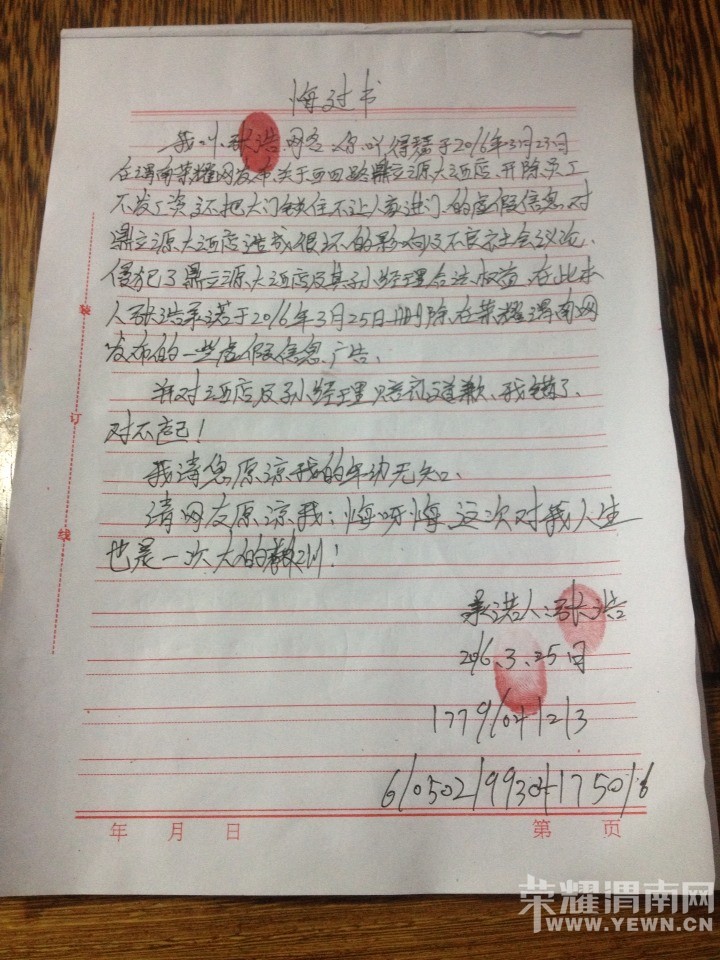 悔过书
我叫张浩,网名你叫得瑟于2016年3月23日
在渭南荣耀网发布关于西四路鼎立源大酒店、开除员工
不发工资还把大门锁住不让人家进门的虚假信息.对
鼎立源大酒店造成很坏的影响及不良社会议论、
侵犯了鼎立源大酒店及其孙经理合法权益、在此本
人张浩承诺于2016年3月25日删除在荣耀渭南网
发布的一些虚假信息、广告、
并对酒店及孙经理赔礼道歉、我错了、
对不起!
我请您原谅我的年幼无知、
请网友原谅我:悔呀悔这次对我人生
也是一次大的教训!
承诺人:张浩
2016.3.25日
装
订
线
年 月 日
第 页
荣耀渭南网
WWW.YEWN.CN